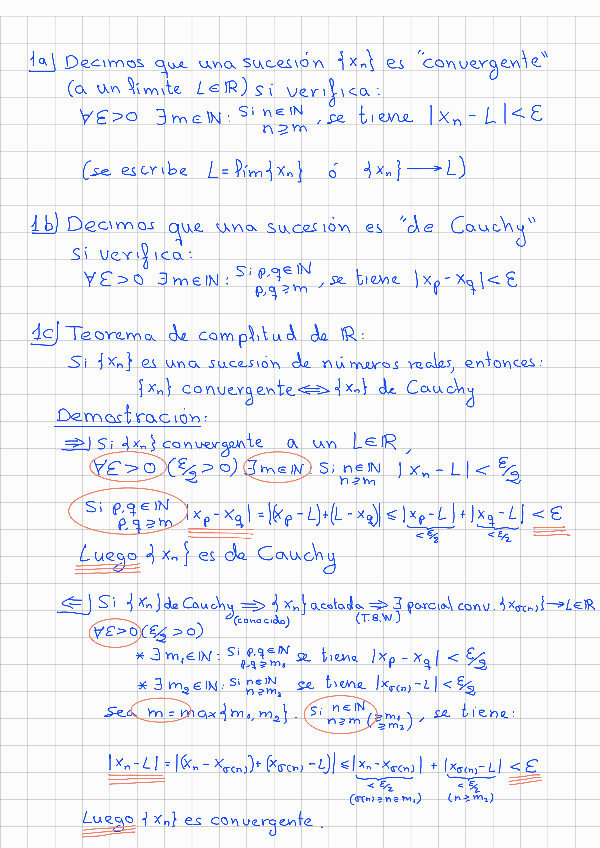 1a) Decimos que una sucesión {xₙ} es "convergente"
(a un límite L∈ℝ) si verifica:
∀ε>0 ∃m∈ℕ: Si n∈ℕ n≥m, se tiene |xₙ - L| < ε
(se escribe L = lím{xₙ} ó {xₙ} ⟶ L)
1b) Decimos que una sucesión es "de Cauchy"
si verifica:
∀ε>0 ∃m∈ℕ: Si p,q∈ℕ p,q≥m, se tiene |xₚ - x_q| < ε
1c) Teorema de complitud de ℝ:
Si {xₙ} es una sucesión de números reales, entonces:
{xₙ} convergente ⟺ {xₙ} de Cauchy
Demostración:
⇒) Si {xₙ} convergente a un L∈ℝ,
∀ε>0 (ε/2>0) ∃m∈ℕ: Si n∈ℕ n≥m |xₙ - L| < ε/2
Si p,q∈ℕ p,q≥m |xₚ - x_q| = |(xₚ - L)+(L - x_q)| ≤ |xₚ - L| + |x_q - L| < ε
<ε/2 <ε/2
Luego {xₙ} es de Cauchy
⇐) Si {xₙ} de Cauchy ⟹ {xₙ} acotada ⟹ ∃ parcial conv. {x_σ(n)} → L∈ℝ
(conocido) (T.B.W.)
∀ε>0 (ε/2>0)
* ∃m₁∈ℕ: Si p,q∈ℕ p,q≥m₁ se tiene |xₚ - x_q| < ε/2
* ∃m₂∈ℕ: Si n∈ℕ n≥m₂ se tiene |x_σ(n) - L| < ε/2
Sea m = max{m₁, m₂}. Si n∈ℕ n≥m (≥m₁ ≥m₂), se tiene:
|xₙ - L| = |(xₙ - x_σ(n)) + (x_σ(n) - L)| ≤ |xₙ - x_σ(n)| + |x_σ(n) - L| < ε
<ε/2 <ε/2
(σ(n)≥n≥m₁) (n≥m₂)
Luego {xₙ} es convergente.